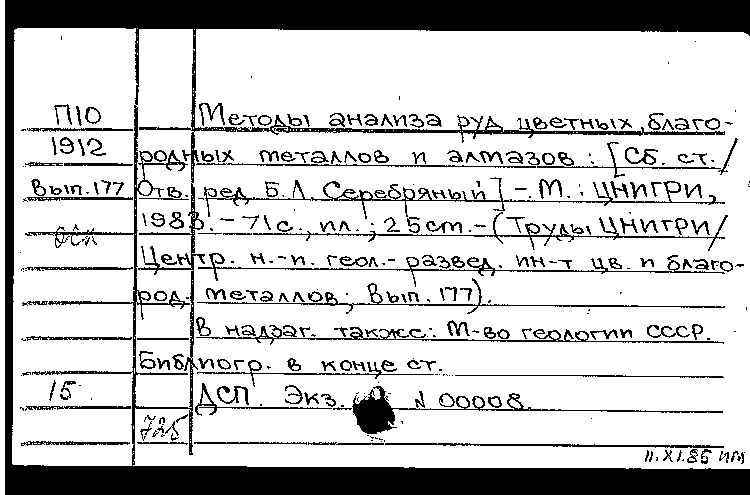 П10 Методы анализа руд цветных, благо-
1912 родных металлов и алмазов : [Сб. ст./
Вып.177 Отв. ред Б.Л. Серебряный] -. М. : ЦНИГРИ,
1983. - 71с., ил.; 25см. - (Труды ЦНИГРИ/
Центр. н.-и. геол.- развед. ин-т цв. и благо-
род. металлов; Вып. 177).
В надзаг. также: М-во геологии СССР.
Библиогр. в конце ст.
15 ДСП. Экз. N 00008.
725
11.XI.85